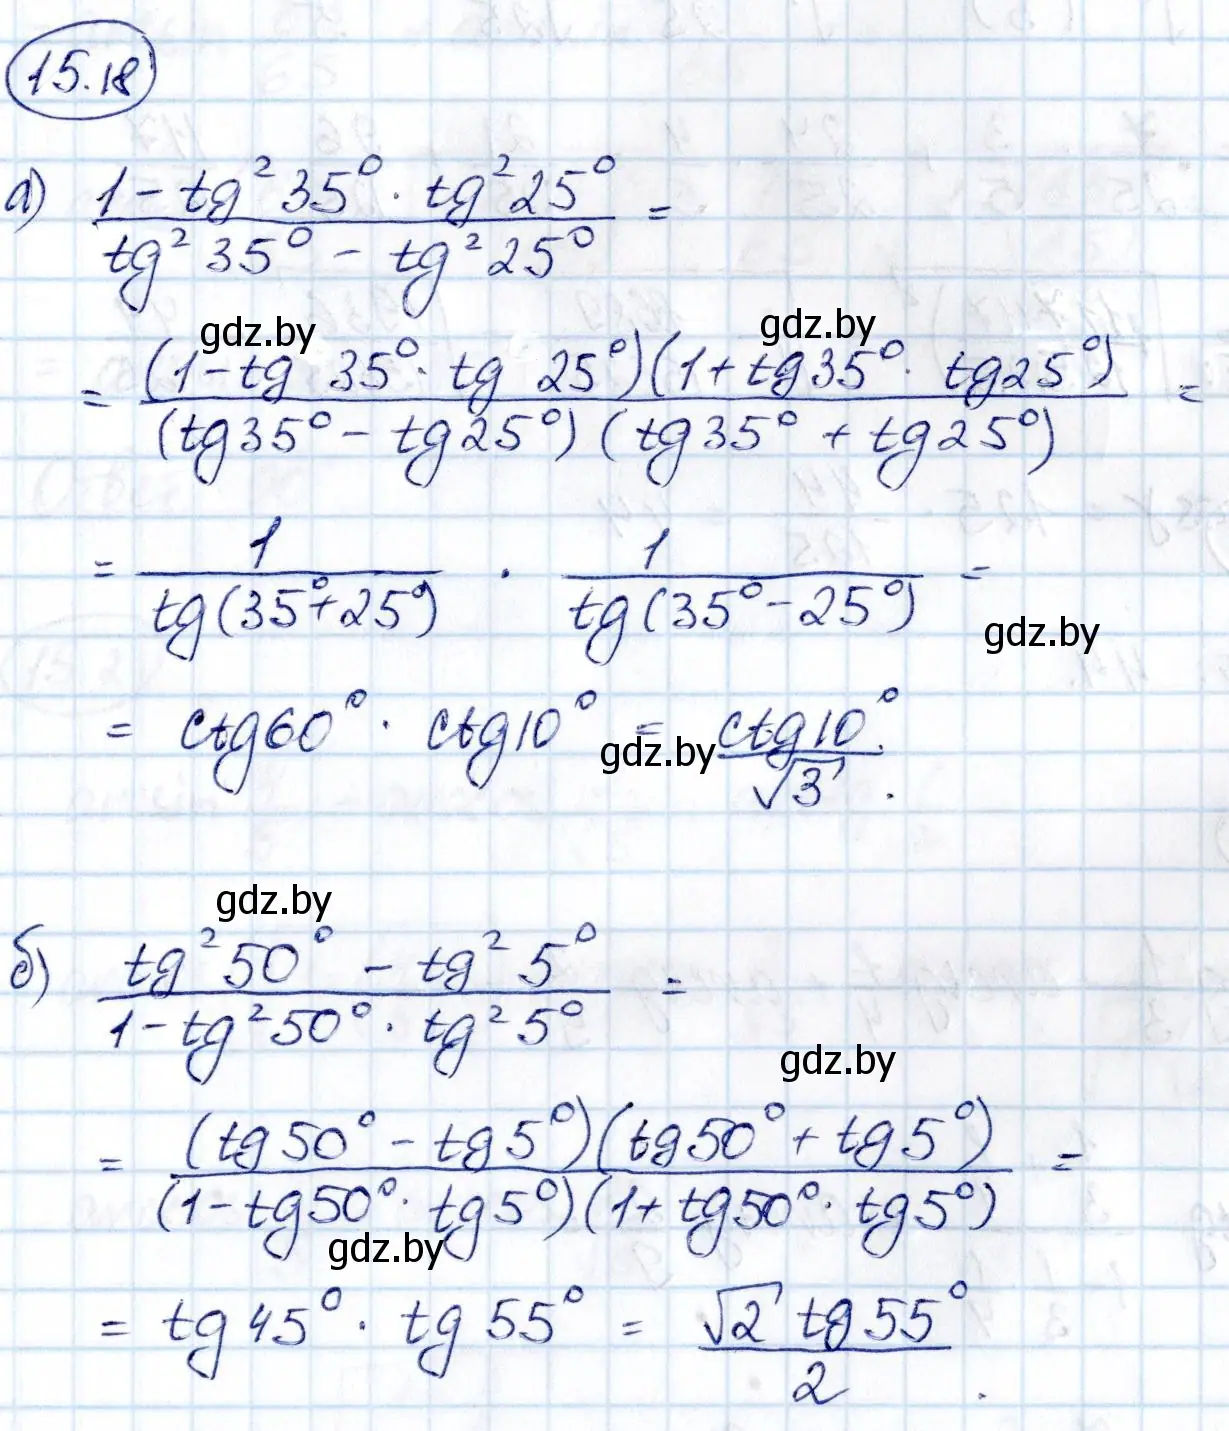 15.18
а) (1 - tg²35° · tg²25°) / (tg²35° - tg²25°) =
gdz.by gdz.by
= ((1 - tg 35° · tg 25°)(1 + tg35° · tg25°)) / ((tg35° - tg25°)(tg35° + tg25°)) =
= 1 / tg(35° + 25°) · 1 / tg(35° - 25°) =
gdz.by
= ctg60° · ctg10° = ctg10° / √3.
gdz.by
gdz.by
б) (tg²50° - tg²5°) / (1 - tg²50° · tg²5°) =
gdz.by
= ((tg50° - tg5°)(tg50° + tg5°)) / ((1 - tg50° · tg5°)(1 + tg50° · tg5°)) =
gdz.by
= tg45° · tg55° = √2 tg55° / 2.